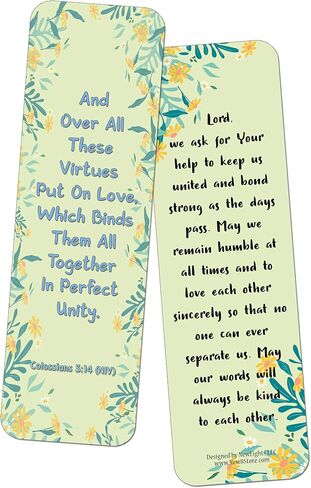 And
Over All
These
Virtues
Put On Love,
Which Binds
Them All
Together
In Perfect
Unity.
Colossians 3:14 (NIV)
Lord,
we ask for Your
help to keep us
united and bond
strong as the days
pass. May we
remain humble at
all times and to
love each other
sincerely so that no
one can ever
separate us. May
our words will
always be kind
to each other.
Designed by NewEights LLC
www.New8Store.com